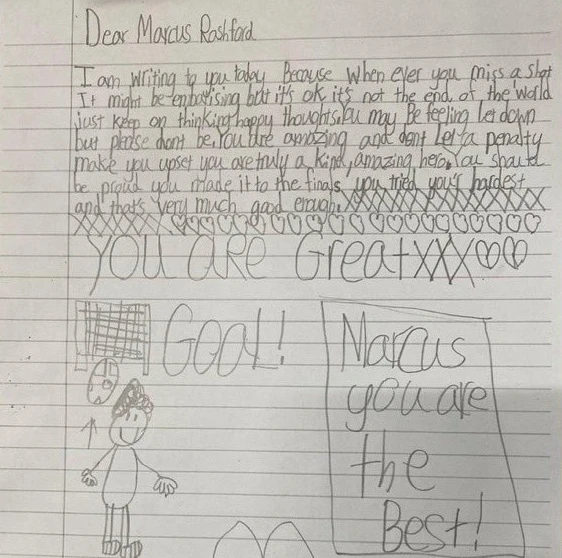 Dear Marcus Rashford
I am writing to you today Because when ever you miss a shot
It might be embarising but it's ok it's not the end of the world
just keep on thinking happy thoughts. You may Be feeling let down
but please dont be. You are amazing and dont Let a penalty
make you upset you are truly a kind, amazing hero. You should
be proud you made it to the finals, you tried you'r hardest
and that's very much good enough. XXXXXXXXXXXXXX
XXXXXXX
You are Great XXX
GOAL!
Marcus
you are
the
Best!